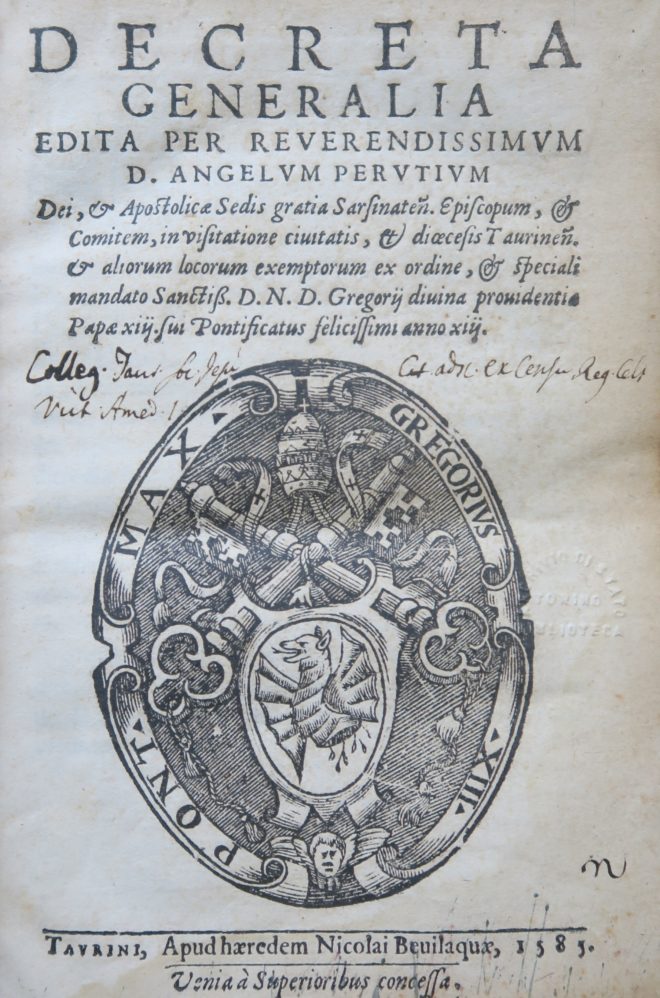 DECRETA
GENERALIA
EDITA PER REVERENDISSIMVM
D. ANGELVM PERVTIVM
Dei, & Apostolicæ Sedis gratia Sarsinateñ. Episcopum, &
Comitem, in visitatione ciuitatis, & diœcesis Taurineñ.
& aliorum locorum exemptorum ex ordine, & speciali
mandato Sanctiß. D. N. D. Gregorij diuina prouidentia
Papæ xiij. sui Pontificatus felicissimi anno xiij.
Colleg. Taur. Soc Jesu
Cat. adsc. ex Censu Reg. Cels
Vict Amed.
GREGORIVS
XIII
PONT
MAX
TAVRINI, Apud hæredem Nicolai Beuilaquæ, 1585.
Venia à Superioribus concessa.